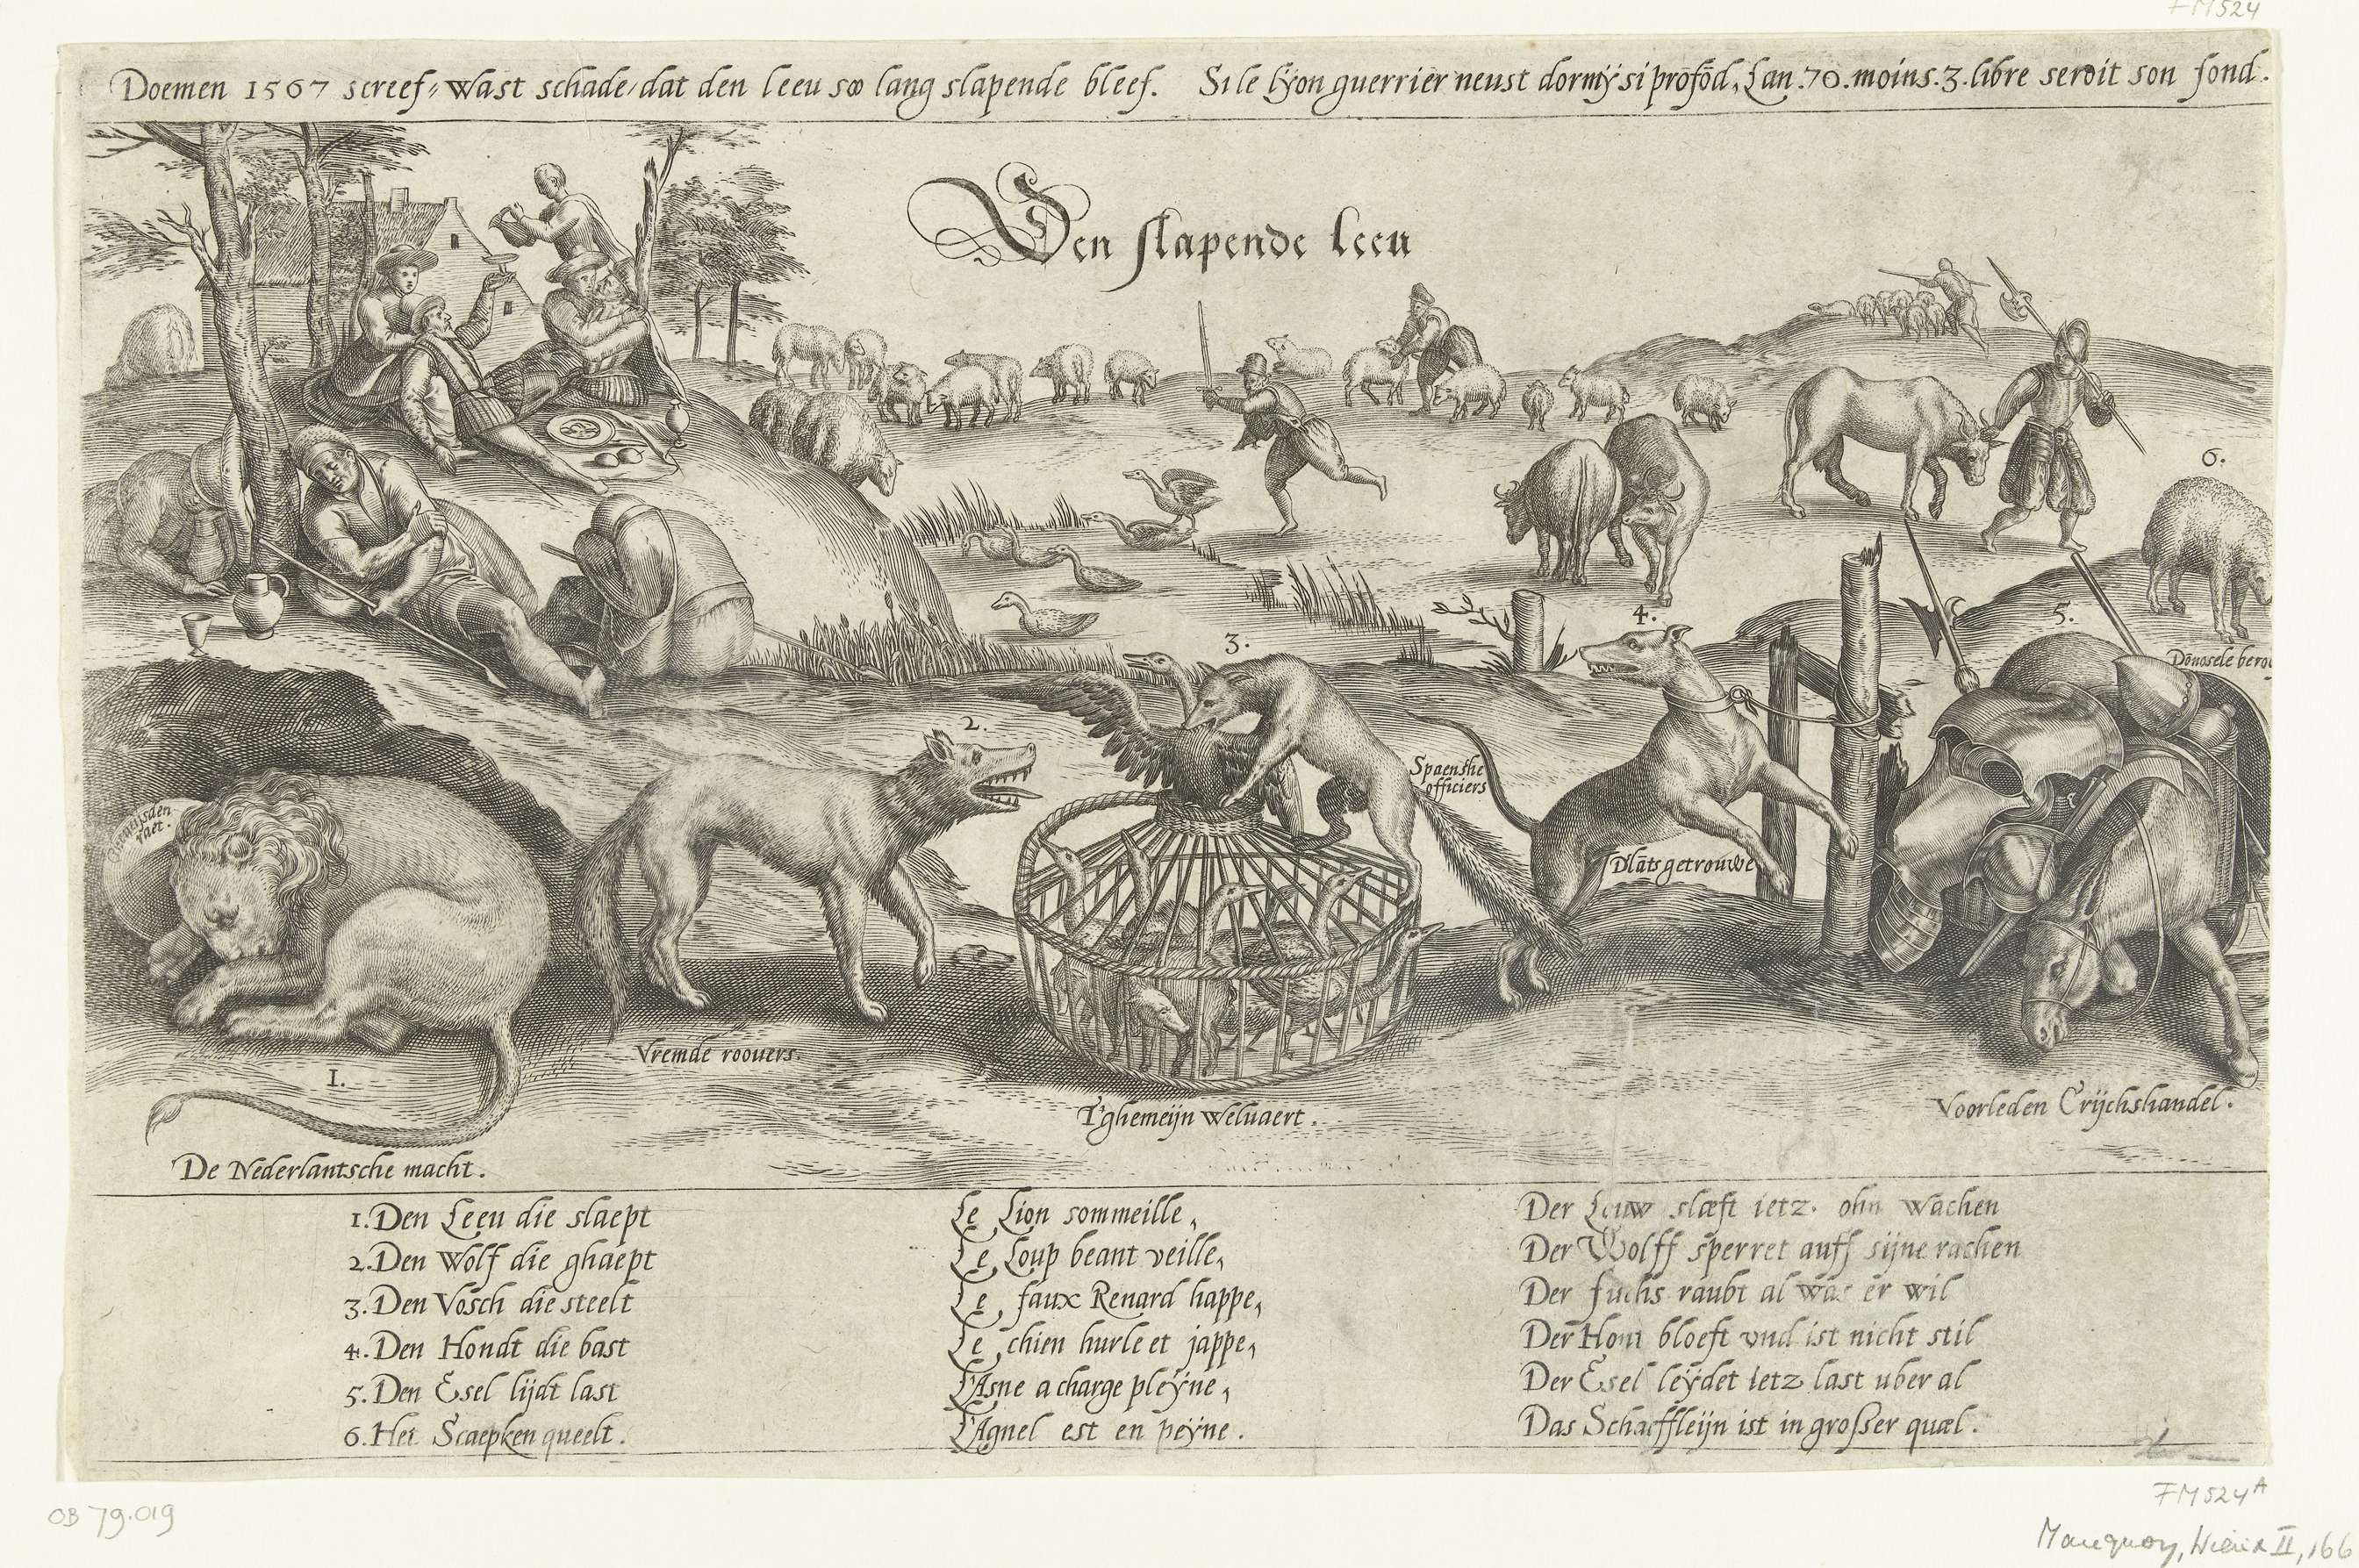 FM524
Doemen 1567 screef, wast schade, dat den leeu soo lang slapende bleef. Si le lÿon guerrier neust dormÿ si profōd, Lan .70. moins .3. libre seroit son fond.
Den slapende leeu
6.
5.
4.
3.
2.
Dōnosele
Spaenshe
officiers
Dlāts getrouwe
raet.
Vremde roovers.
1.
T'ghemeijn weluaert.
Voorleden Crijchshandel.
De Nederlantsche macht.
1. Den Leeu die slaept
2. Den Wolf die ghaept
3. Den Vosch die steelt
4. Den Hondt die bast
5. Den Esel lijdt last
6. Het Scaepken queelt.
Le Lion sommeille,
Le Loup beant veille,
Le faux Renard happe,
Le chien hurle et jappe,
L'Asne a charge pleÿne,
L'Agnel est en peÿne.
Der Leuw slæft ietz. ohn wachen
Der Wolff sperret auff sijne rachen
Der fuchs raubt al was er wil
Der Hont bloeft vnd ist nicht stil
Der Esel leÿdet ietz last uber al
Das Schaffleijn ist in groſser quæl.
OB 79.019
FM524A
Mauquoy, Wierix II, 166